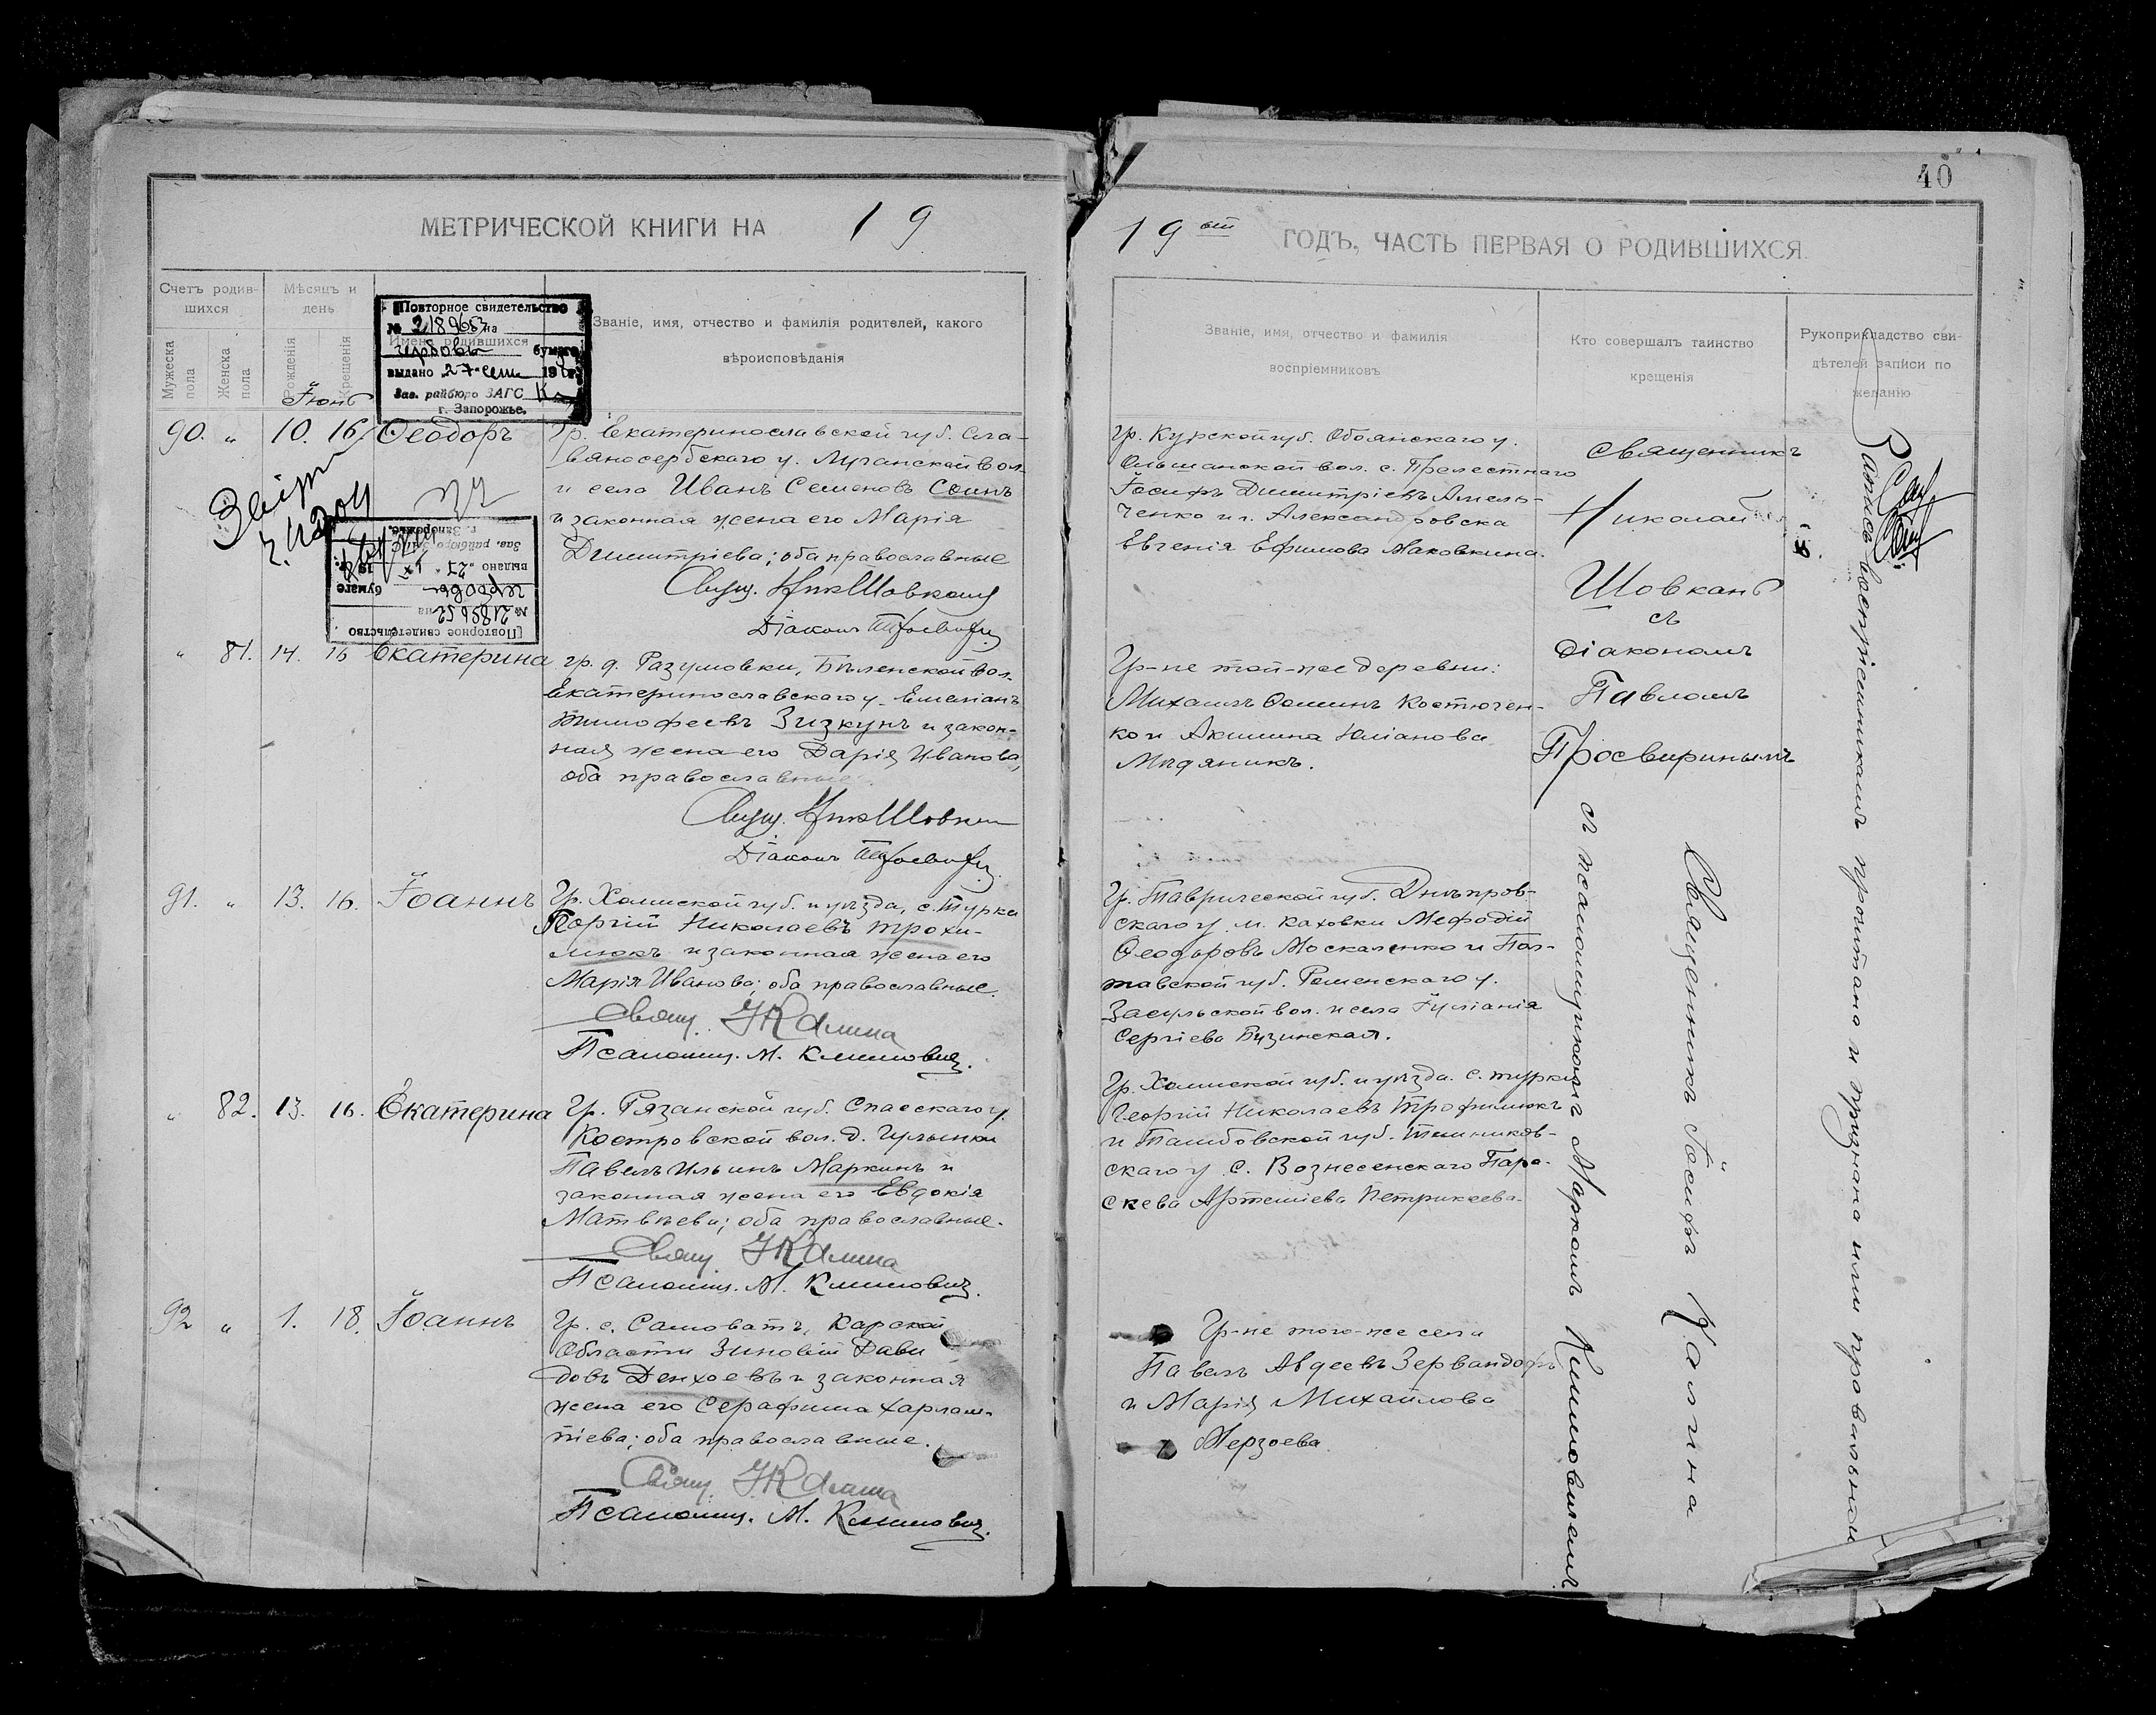 МЕТРИЧЕСКОЙ КНИГИ НА 19
Счетъ родив-
шихся
Мѣсяцъ и
день
Мужеска
пола
Женска
пола
Рожденія
Крещенія
Имена родившихся
Званіе, имя, отчество и фамилія родителей, какого
вѣроисповѣданія
Іюнь
Повторное свидетельство
№ 218963 на
гербовъ бумаге
выдано 27
Зав. райбюро ЗАГС
г. Запорожье.
90. „ 10. 16. Ѳеодоръ
Гр. Екатеринославской губ. Сла-
вяносербскаго у. Луганской вол.
и села Иванъ Семеновъ Соинъ
и законная жена его Марія
Димитріева; оба православные
Свящ. Ник Шовкань
Діаконъ Просвирин
Повторное свидетельство
на
гербовъ бумаге
выдано „27“
Зав. райбюро ЗАГС
г. Запорожье.
„ 81. 14. 16 Екатерина
гр. д. Разумовки, Бѣленской вол.
Екатеринославскаго у. Емеліанъ
Тимофеевъ Зизкунъ и закон-
ная жена его Дарія Иванова,
оба православные
Свящ. Ник Шовкан
Діаконъ Просвирин
91. „ 13. 16. Іоаннъ
Гр. Холмской губ. и уѣзда, с. Турка
Георгій Николаевъ Трохи-
мюкъ и законная жена его
Марія Иванова; оба православные.
Свящ. І Калина
Псаломщ. М. Климович.
„ 82. 13. 16. Екатерина
Гр. Рязанской губ. Спасскаго у.
Костровской вол. д.
Павелъ Ильинъ Маркинъ и
законная жена его Евдокія
Матвѣева; оба православные.
Свящ. І Калина
Псаломщ. М. Климович.
92 „ 1. 18. Іоаннъ
Гр. с. Самоватъ, Карской
Области Зиновій Дави
довъ Денхоевъ и законная
жена его Серафима Харлам-
піева; оба православные.
Свящ. І Калина
Псаломщ. М. Климович.
40
19 ый ГОДЪ, ЧАСТЬ ПЕРВАЯ О РОДИВШИХСЯ.
Званіе, имя, отчество и фамилія
воспріемниковъ
Кто совершалъ таинство
крещенія
Рукоприкладство сви-
дѣтелей записи по
желанію
гр. Курской губ. Обоянскаго у.
Ольшанской вол. с. Прелестнаго
Іосифъ Димитріевъ Амель-
ченко и г. Александровска
Евгенія Ефимова Маковкина.
Гр-не той-же деревни:
Михаилъ Ѳоминъ Костючен-
ко и Акилина Юліанова
Мидяникъ.
Гр. Таврической губ. Днѣпров-
скаго у. м. Каховки Мефодій
Ѳеодоровъ Москаленко и Пол-
тавской губ. Роменскаго у.
Засульской вол. и села Іуліанія
Сергіева Бузинская.
Гр. Холмской губ. и уѣзда. с. Турки
Георгій Николаевъ Трофимюкъ
и Тамбовской губ. Темников-
скаго у с. Вознесенскаго Пара-
скева Артеміева Петрикеева.
Гр-не того-же села
Павелъ Авдеевъ Зервандовъ
и Марія Михайлова
Мерзоева
священникъ
Николай
Шовкань
съ
діакономъ
Павломъ
Просвиринымъ
Священникъ Іосифъ Калина
съ псаломщикомъ Маркомъ Климовичемъ
Запись воспріемникамъ прочитано и признана ими правильной